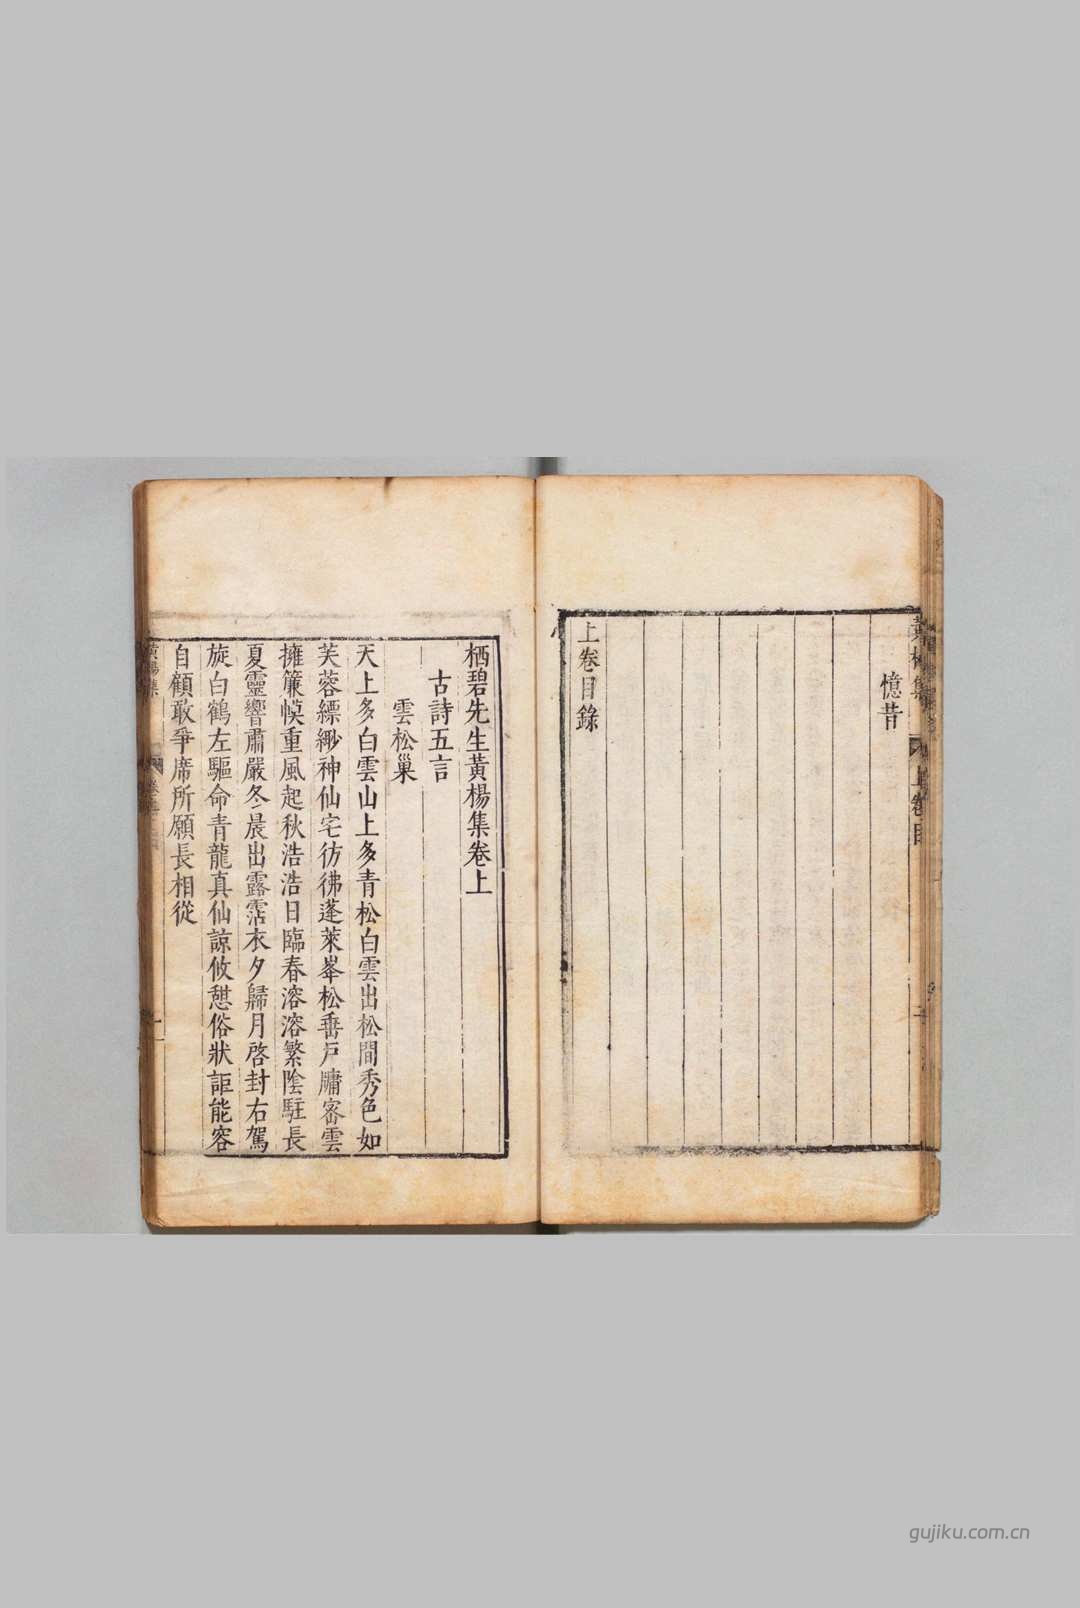 憶昔
上卷目錄
栖碧先生黃楊集卷上
古詩五言
雲松巢
天上多白雲山上多青松白雲出松間秀色如
芙蓉縹緲神仙宅彷彿蓬萊峯松垂戶牖密雲
擁簾幙重風起秋浩浩日臨春溶溶繁陰駐長
夏靈響肅嚴冬晨出露霑衣夕歸月啓封右駕
旋白鶴左驅命青龍真仙諒攸憇俗狀詎能容
自顧敢爭席所願長相從
黃楊集
gujiku.com.cn